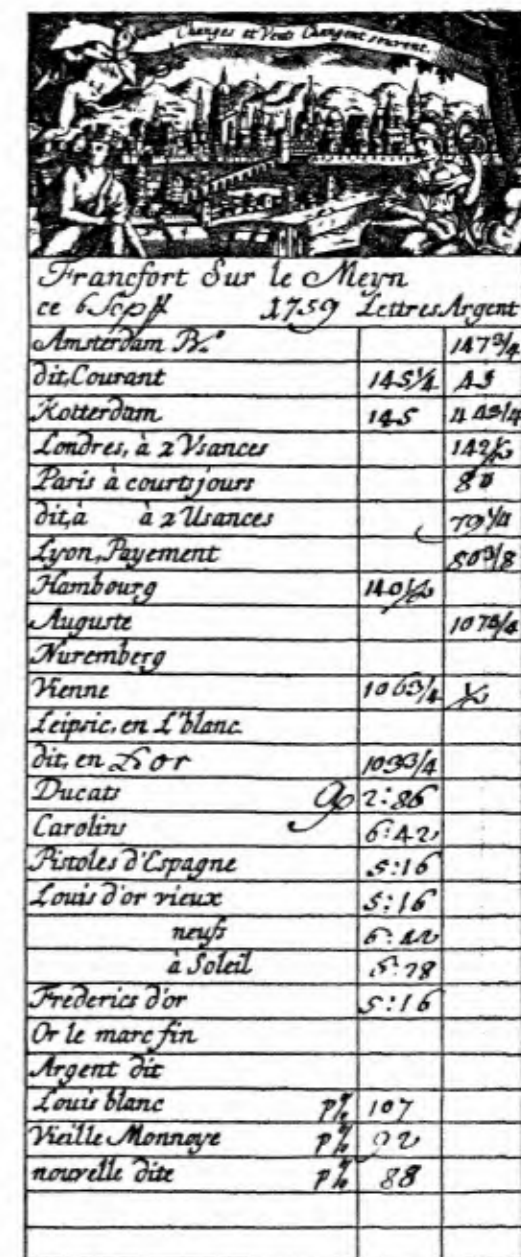 Changes et Vents Changent souvent.
Francfort Sur le Meyn
ce 6 Sep 1759 Lettres Argent
Amsterdam Bo. 147 3/4
dit, Courant 145 1/4 45
Rotterdam 145 3/4
Londres, à 2 Vsances 142 1/2
Paris à courts jours 80
dit, à à 2 Usances 79 1/4
Lyon, Payement 80 3/8
Hambourg 140 1/2
Auguste 107 3/4
Nuremberg
Vienne 106 3/4 1/2
Leipsic, en L'blanc
dit, en L'or 103 3/4
Ducats 2:86
Carolins 6:42
Pistoles d'Espagne 5:16
Louis d'or vieux 5:16
neufs 6:42
à Soleil 6:28
Frederics d'or 5:16
Or le marc fin
Argent dit
Louis blanc p% 107
Vieille Monnoye p% 92
nouvelle dite p% 88